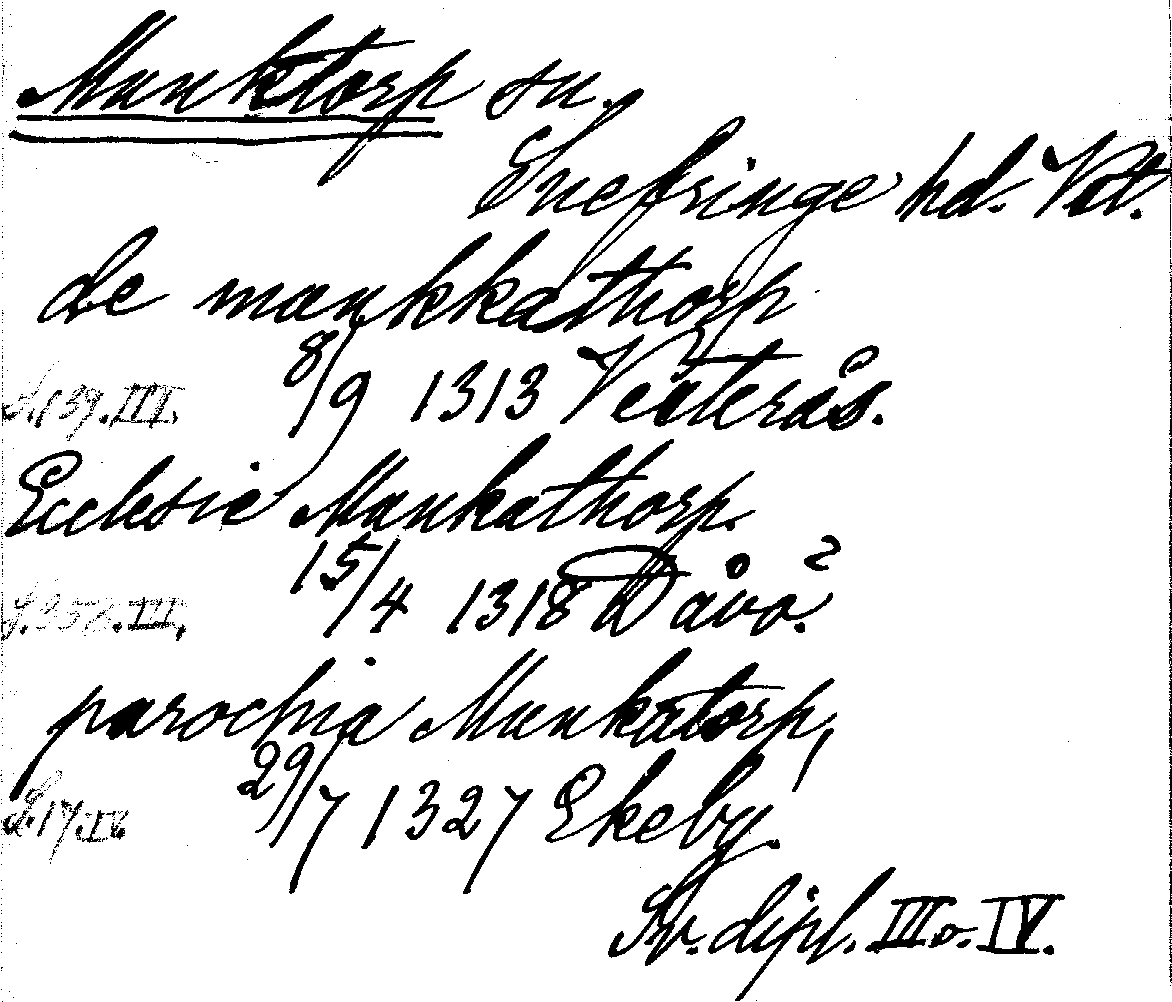 Munktorp sn.
Snefringe hd. Vstl.
de munkkathorp
8/9 1313 Västerås.
S. 139. III.
Ecclesie Munkathorp.
15/4 1318 Dåvö?
III.
parochia Munkatorp,
29/7 1327 Ekeby!
S. 17. IV.
Sv. dipl. III o. IV.